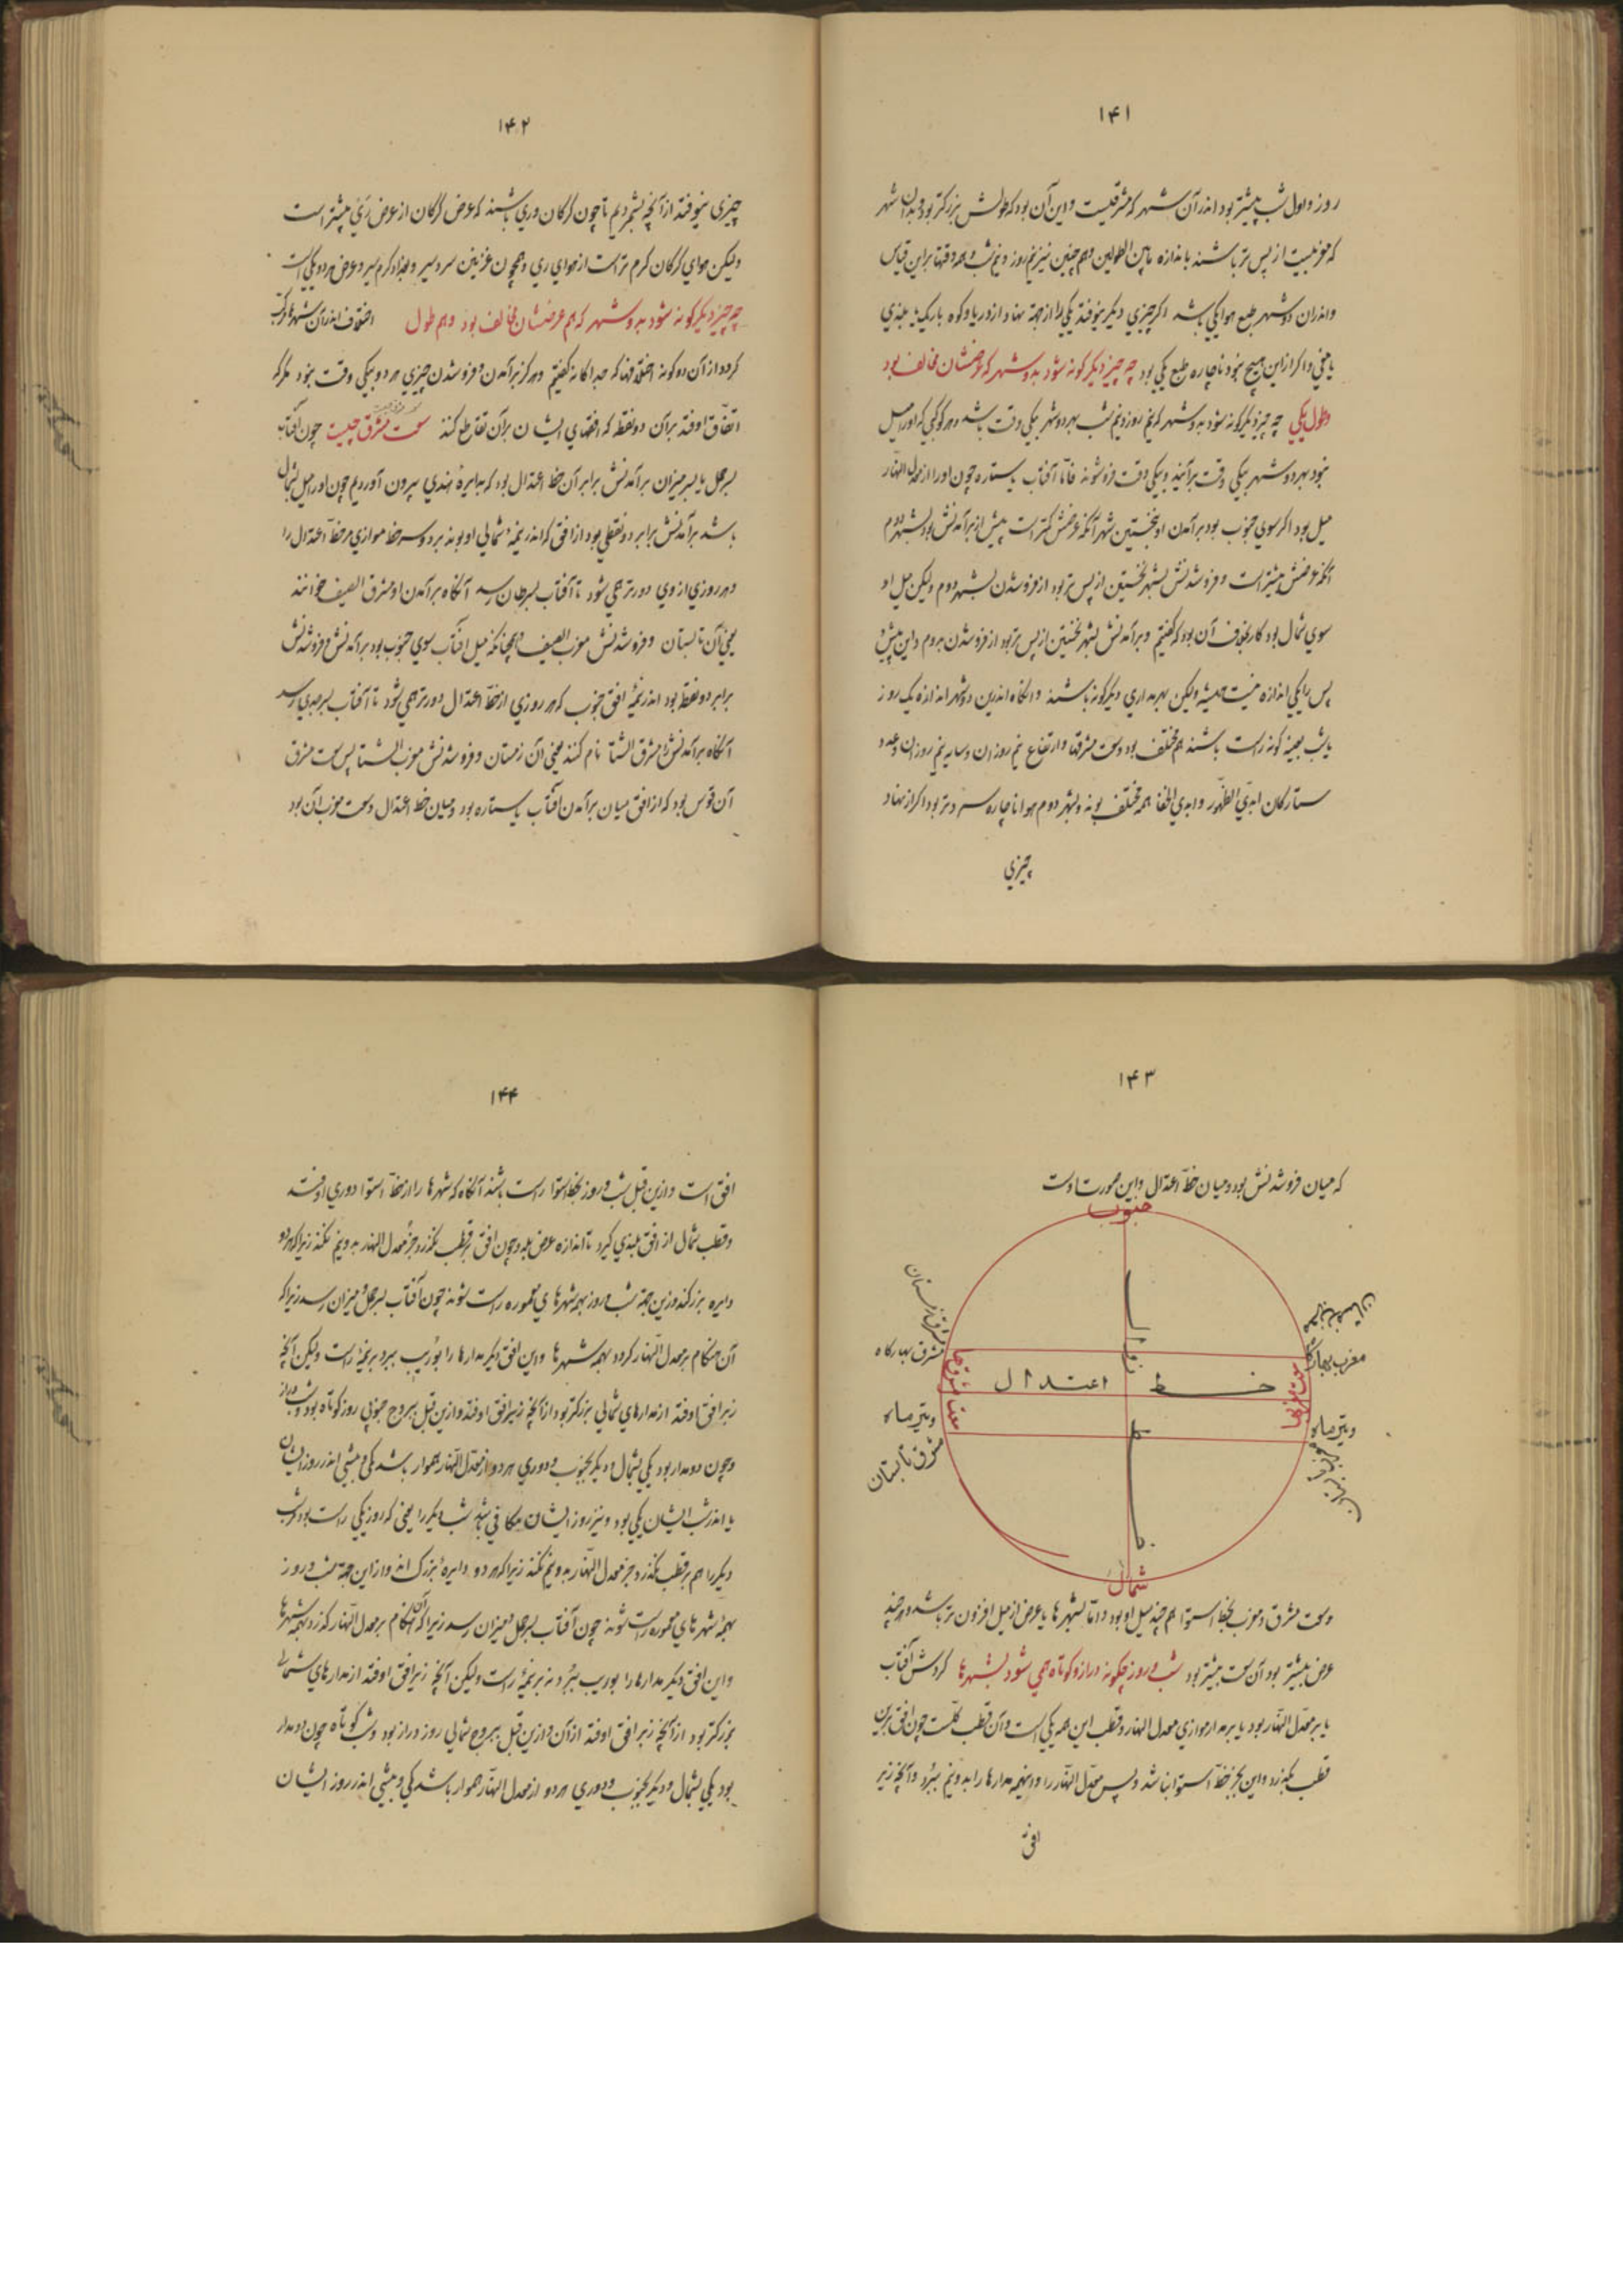 ۱۴۱
روز و اول شب پیشتر بود اندر آن شهر که مشرقیست و این آن بود که طولش بزرگتر بود و بدان شهر
که مغربیست از پس تر باشند باندازه مابین الطولین و هم چنین نیز نیم روز و نیم شب و همه وقتها براین قیاس
و اندران دو شهر طبع هوا یکی باشد اگر چیزی دیگر نیوفتد یکی را از جهة نهاد از دریا و کوه باریک یا بلندی
یا مغی و اگر ازین هیچ نبود ناچاره طبع یکی بود چه چیز دیگرگونه شود بدو شهر که عرضشان مخالف بود
و طول یکی چه چیز دیگرگونه شود بدو شهر که نیم روز و نیم شب بهر دو شهر بیکی وقت باشد و هر کوکبی که او را میل
نبود بهر دو شهر بیکی وقت برآیند و بیکی وقت فرو شوند فاما آفتاب یا ستاره چون او را از معدل النهار
میل بود اگر سوی جنوب بود برآمدن او نخستین شهر آنکه عرضش کمتر است پیش از برآمدنش بود بشهر دوم
آنکه عرضش بیشتر است و فروشدنش بشهر نخستین از پس تر بود از فروشدن بشهر دوم ولیکن میل او
سوی شمال بود کار بخلاف آن بود که گفتیم و برآمدنش بشهر نخستین از پس تر بود از فروشدن بدوم و این پیش و
پس را یکی اندازه نیست همیشه ولیکن بهر مداری دیگرگونه باشند و آنگاه اندرین دو شهر اندازه یک روز
یا شب بعینه کونه راست باشند هم مختلف بود و سعت مشرقها و ارتفاع نیم روزان و سایه نیم روزان و عدد
ستارگان ابدی الظهور و ابدی الخفا همه مختلف بوند و بشهر دوم هوا ناچاره سردتر بود اگر از نهاد
چیزی
۱۴۲
چیزی نیوفتد از آنچه بشمردیم تا چون گرگان و ری باشند که عرض گرگان از عرض ری بیشتر است
ولیکن هوای گرگان گرم تر است از هوای ری و همچون غزنین سردسیر و بغداد گرم سیر و عرض هر دو یکی است
چه چیز دیگرگونه شود بدو شهر که هم عرضشان مخالف بود و هم طول اختلاف اندرآن شهرها مرکب
گردد از آن دو گونه اختلافها که جداگانه گفتیم و هرگز برآمدن و فروشدن چیزی هر دو بیکی وقت نبود مگر که
اتفاق اوفتد برآن دو نقطه که افقهای ایشان برآن تقاطع کنند سعت مشرق چیست چون آفتاب
بسر حمل یا بسر میزان برآمدنش برابر آن خط اعتدال بود که بدایرهٔ هندی بیرون آوردیم چون او را میل بشمال
باشد برآمدنش برابر دو نقطی بود از افق که اندر نیمهٔ شمالی او بوند بر دو سر خط موازی مر خط اعتدال را
و هر روزی از وی دورتر همی شود تا آفتاب بسرطان رسد آنگاه برآمدن او مشرق الصیف خوانند
یعنی آن تابستان و فروشدنش مغرب الصیف و همچنانکه میل آفتاب سوی جنوب بود برآمدنش و فروشدنش
برابر دو نقطه بود اندر نیمهٔ افق جنوب که هر روزی از خط اعتدال دورتر همی شود تا آفتاب بسر جدی رسد
آنگاه برآمدنش را مشرق الشتا نام کنند یعنی آن زمستان و فروشدنش مغرب الشتا پس سعت مشرق
آن قوس بود که از افق میان برآمدن آفتاب یا ستاره بود و میان خط اعتدال و سعت مغرب آن بود
۱۴۳
که میان فروشدنش بود و میان خط اعتدال و این صورت اوست
جنوب
مشرق زمستان
مشرق بهارگاه
مغرب بهارگاه
سعت مشرقها
سعت مغربها
خط اعتدال
خط زوال
و تیرماه
و تیرماه
مشرق تابستان
مغرب تابستان
شمال
و سعت مشرق و مغرب بخط استوا هم چند میل او بود و اما بشهرها با عرض از میل افزون تر باشد و هر چند
عرض بیشتر بود آن سعت بیشتر بود شب و روز چگونه دراز و کوتاه همی شود بشهرها گردش آفتاب
یا بر معدل النهار بود یا بر مدار موازی معدل النهار و قطب این همه یکی است و آن قطب کلست چون افق برین
قطب بگذرد و این بجز خط استوا نباشد و پس معدل النهار را و این همه مدارها را بدو نیم ببرد و آنچه زیر
افق
۱۴۴
افق است و ازین قبل شب و روز بخط استوا راست باشند آنگاه که شهرها را از خط استوا دوری اوفتد
و قطب شمال از افق بلندی گیرد باندازه عرض بلد و چون افق بر قطب نگذرد جز معدل النهار بدو نیم نکند زیرا که هر دو
دایره بزرگند و زین جهة شب و روز بهمه شهرهای معموره راست شوند چون آفتاب بسر حمل و میزان رسد زیرا که
آن هنگام بر معدل النهار گردد بهمه شهرها و این افق دیگر مدارها را بوریب ببرد نه بر نیمهٔ راست ولیکن آنچه
زبر افق اوفتد از مدارهای شمالی بزرگتر بود از آنچه زیر افق اوفتد و ازین قبل ببروج جنوبی روز کوتاه بود و شب دراز
و چون دو مدار بود یکی بشمال و دیگر بجنوب و دوری هر دو از معدل النهار هموار باشد کمی و بیشی اندر روز ایشان
یا اندر شب ایشان یکی بود و نیز روز ایشان مکافی باشد شب دیگر را یعنی که روز یکی راست بود شب
دیگر را هم بر قطب نگذرد جز معدل النهار بدو نیم نکند زیرا که هر دو دایرهٔ بزرگ اند و از این جهة شب و روز
بهمهٔ شهرهای معموره راست شوند چون آفتاب بسر حمل و میزان رسد زیرا که آن هنگام بر معدل النهار گذرد بهمه شهرها
و این افق دیگر مدارها را بوریب ببرد نه بر نیمهٔ راست ولیکن آنچه زبر افق اوفتد از مدارهای شمالی
بزرگتر بود از آنچه زیر افق اوفتد از آن و ازین قبل ببروج شمالی روز دراز بود و شب کوتاه چون دو مدار
بود یکی بشمال و دیگر بجنوب و دوری هر دو از معدل النهار هموار باشد کمی و بیشی اندر روز ایشان